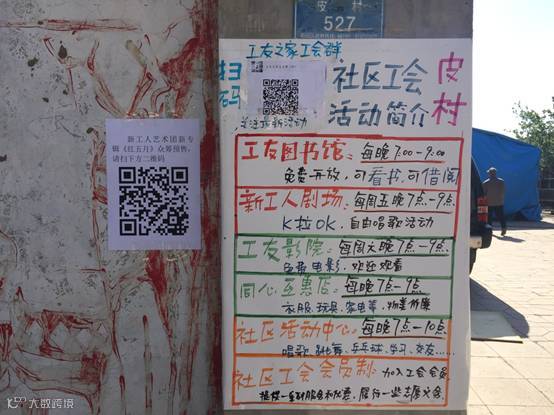 皮 村
527
工友之家工会群
扫码
关注最新活动
社区工会
活动简介
皮村
新工人艺术团新专
辑《红五月》众筹预售,
请扫下方二维码
工友图书馆:每晚7:00-9:00
免费开放,可看书,可借阅
新工人剧场:每周五晚7点-9点
K拉OK,自由唱歌活动
工友影院:每周六晚7点-9点
免费电影,欢迎观看
同心互惠店:每晚7点-9点
衣服、玩具、家电等,物美价廉
社区活动中心:每晚7点-10点
唱歌、跳舞、乒乓球、学习、交友……
社区工会会员制:加入工会会员
大数跨境